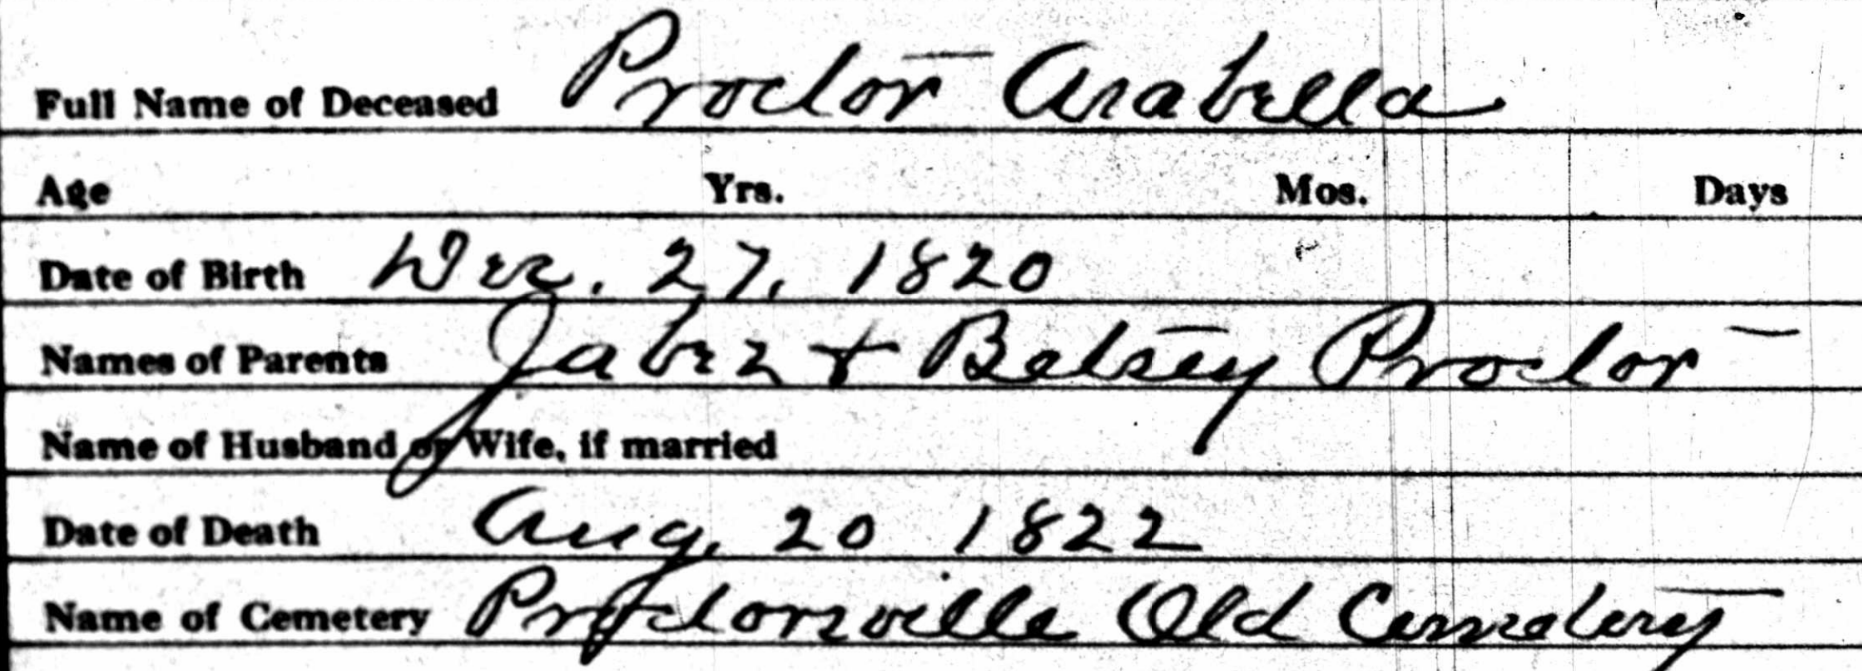 Full Name of Deceased Proctor Arabella
Age Yrs. Mos. Days
Date of Birth Dec. 27, 1820
Names of Parents Jabez + Betsey Proctor
Name of Husband or Wife, if married
Date of Death Aug. 20 1822
Name of Cemetery Proctorsville Old Cemetery